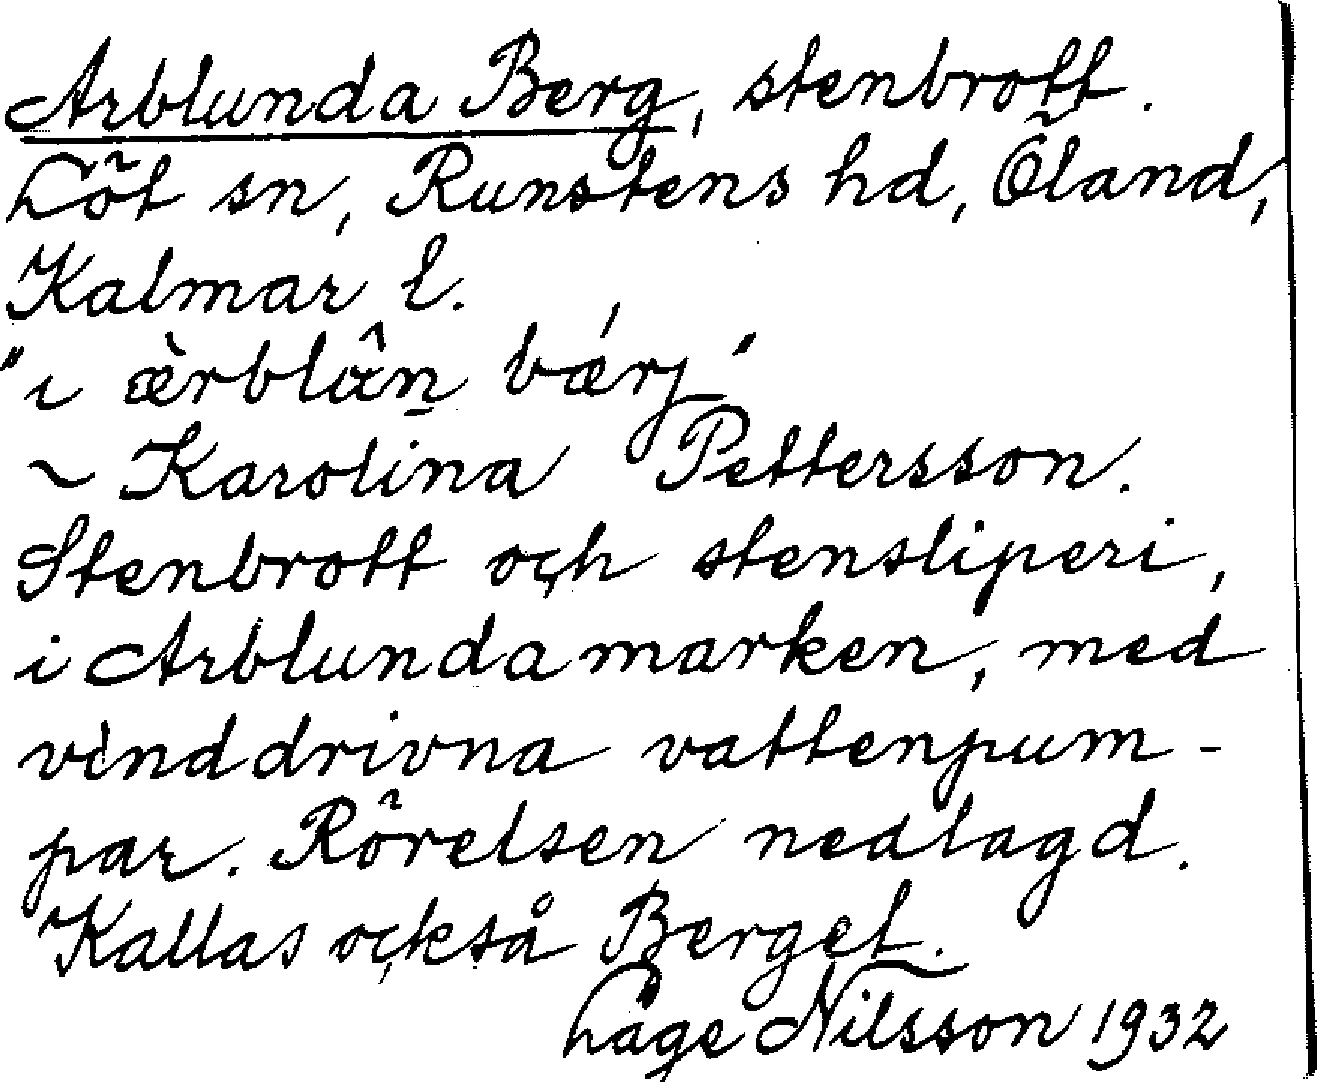 Arblunda Berg, stenbrott.
Löt sn, Runstens hd, Öland,
Kalmar l.
"ı ærblân bǽrj"
~ Karolina Pettersson.
Stenbrott och stensliperi,
i Arblundamarken, med
vinddrivna vattenpum-
par. Rörelsen nedlagd.
Kallas också Berget.
Låge Nilsson 1932